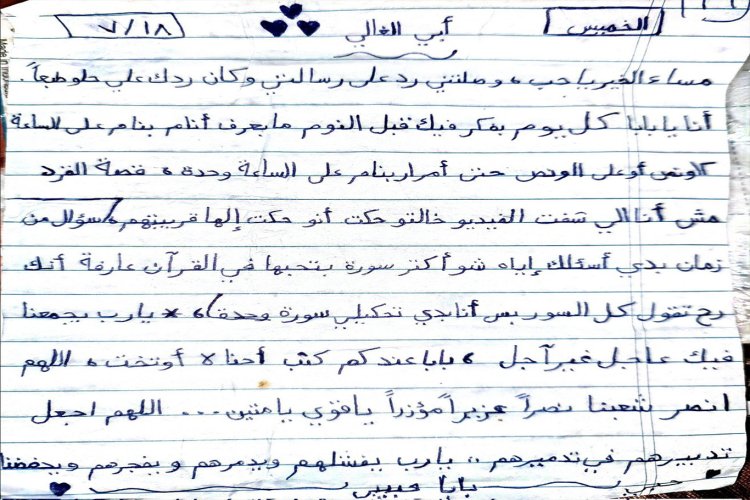 الخميس أبي الغالي ٧/١٨
مساء الخير يا حب، وصلتني رد على رسالتي وكان ردك علي حلو طبعاً.
أنا يا بابا كل يوم بفكر فيك قبل النوم ما بعرف أنام بنام على الساعة
أو على الونص حتى أمرار بنام على الساعة وحدة، قصة الفرد
مش أنا الي شفت الفيديو خالتو حكت أنو حكت إلها قريبتهم، (سؤال من
زمان بدي أسئلك إياه شو أكتر سورة بتحبها في القرآن عارفة أنك
رح تقول كل السور بس أنا بدي تحكيلي سورة وحدة)، * يا رب يجمعنا
فيك عاجل غير آجل، بابا عندكم كتب أحنا لا أو تخت، اللهم
انصر شعبنا نصراً عزيزاً مؤزراً يا قوي يا متين... اللهم اجعل
تدبيرهم في تدميرهم،، يا رب يفشلهم ويدمرهم ويفجرهم ويحفضنا
بابا حبيبي